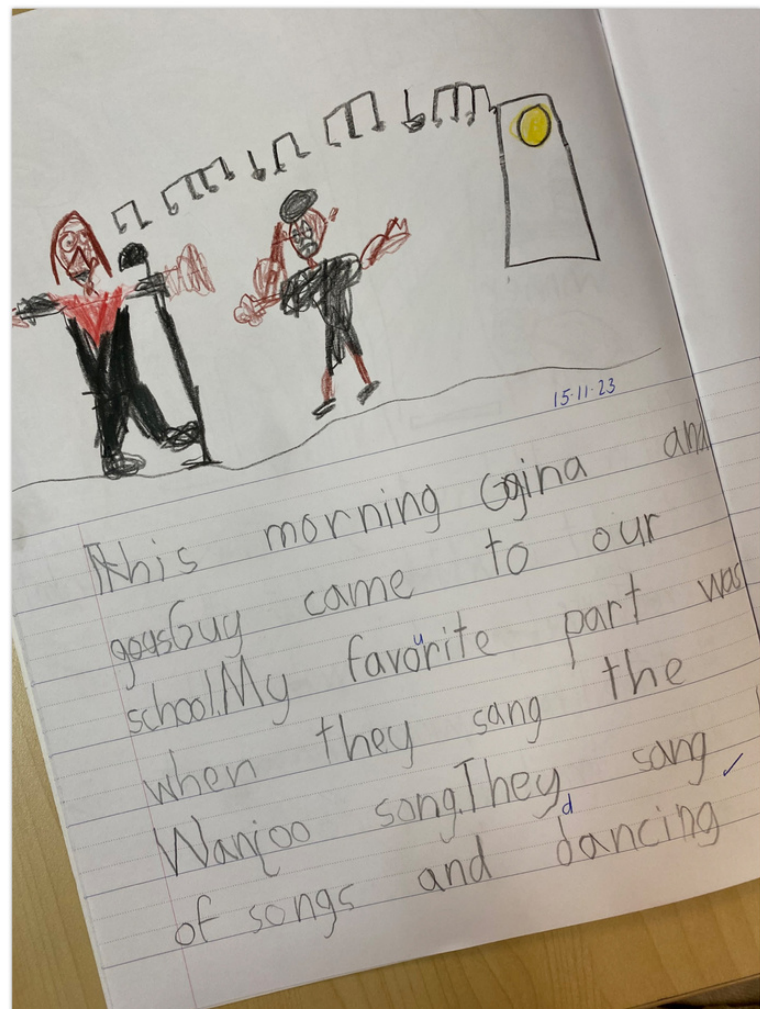 15.11.23
This morning Gina and
Guy came to our
school.My favourite part was
when they sang the
Wanjoo song.They sang
of songs and dancing